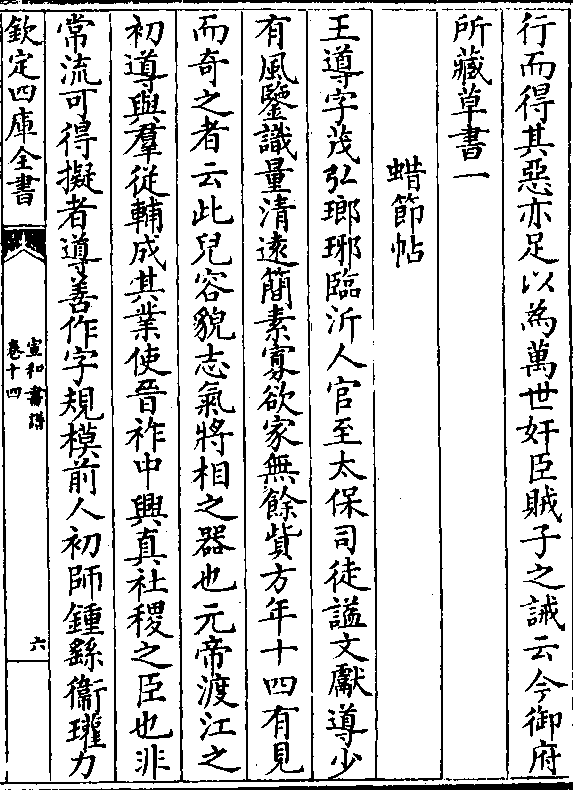 行而得其惡亦足以為萬世奸臣賊子之誡云今御府
所藏草書一
蜡節帖
王導字茂弘瑯琊臨沂人官至太保司徒謚文獻導少
有風鑒識量清遠簡素寡欲家無餘貲方年十四有見
而奇之者云此兒容貌志氣將相之器也元帝渡江之
初導與羣從輔成其業使晉祚中興真社稷之臣也非
常流可得擬者導善作字規模前人初師鍾繇衞瓘力
欽定四庫全書
宣和書譜
卷十四
六